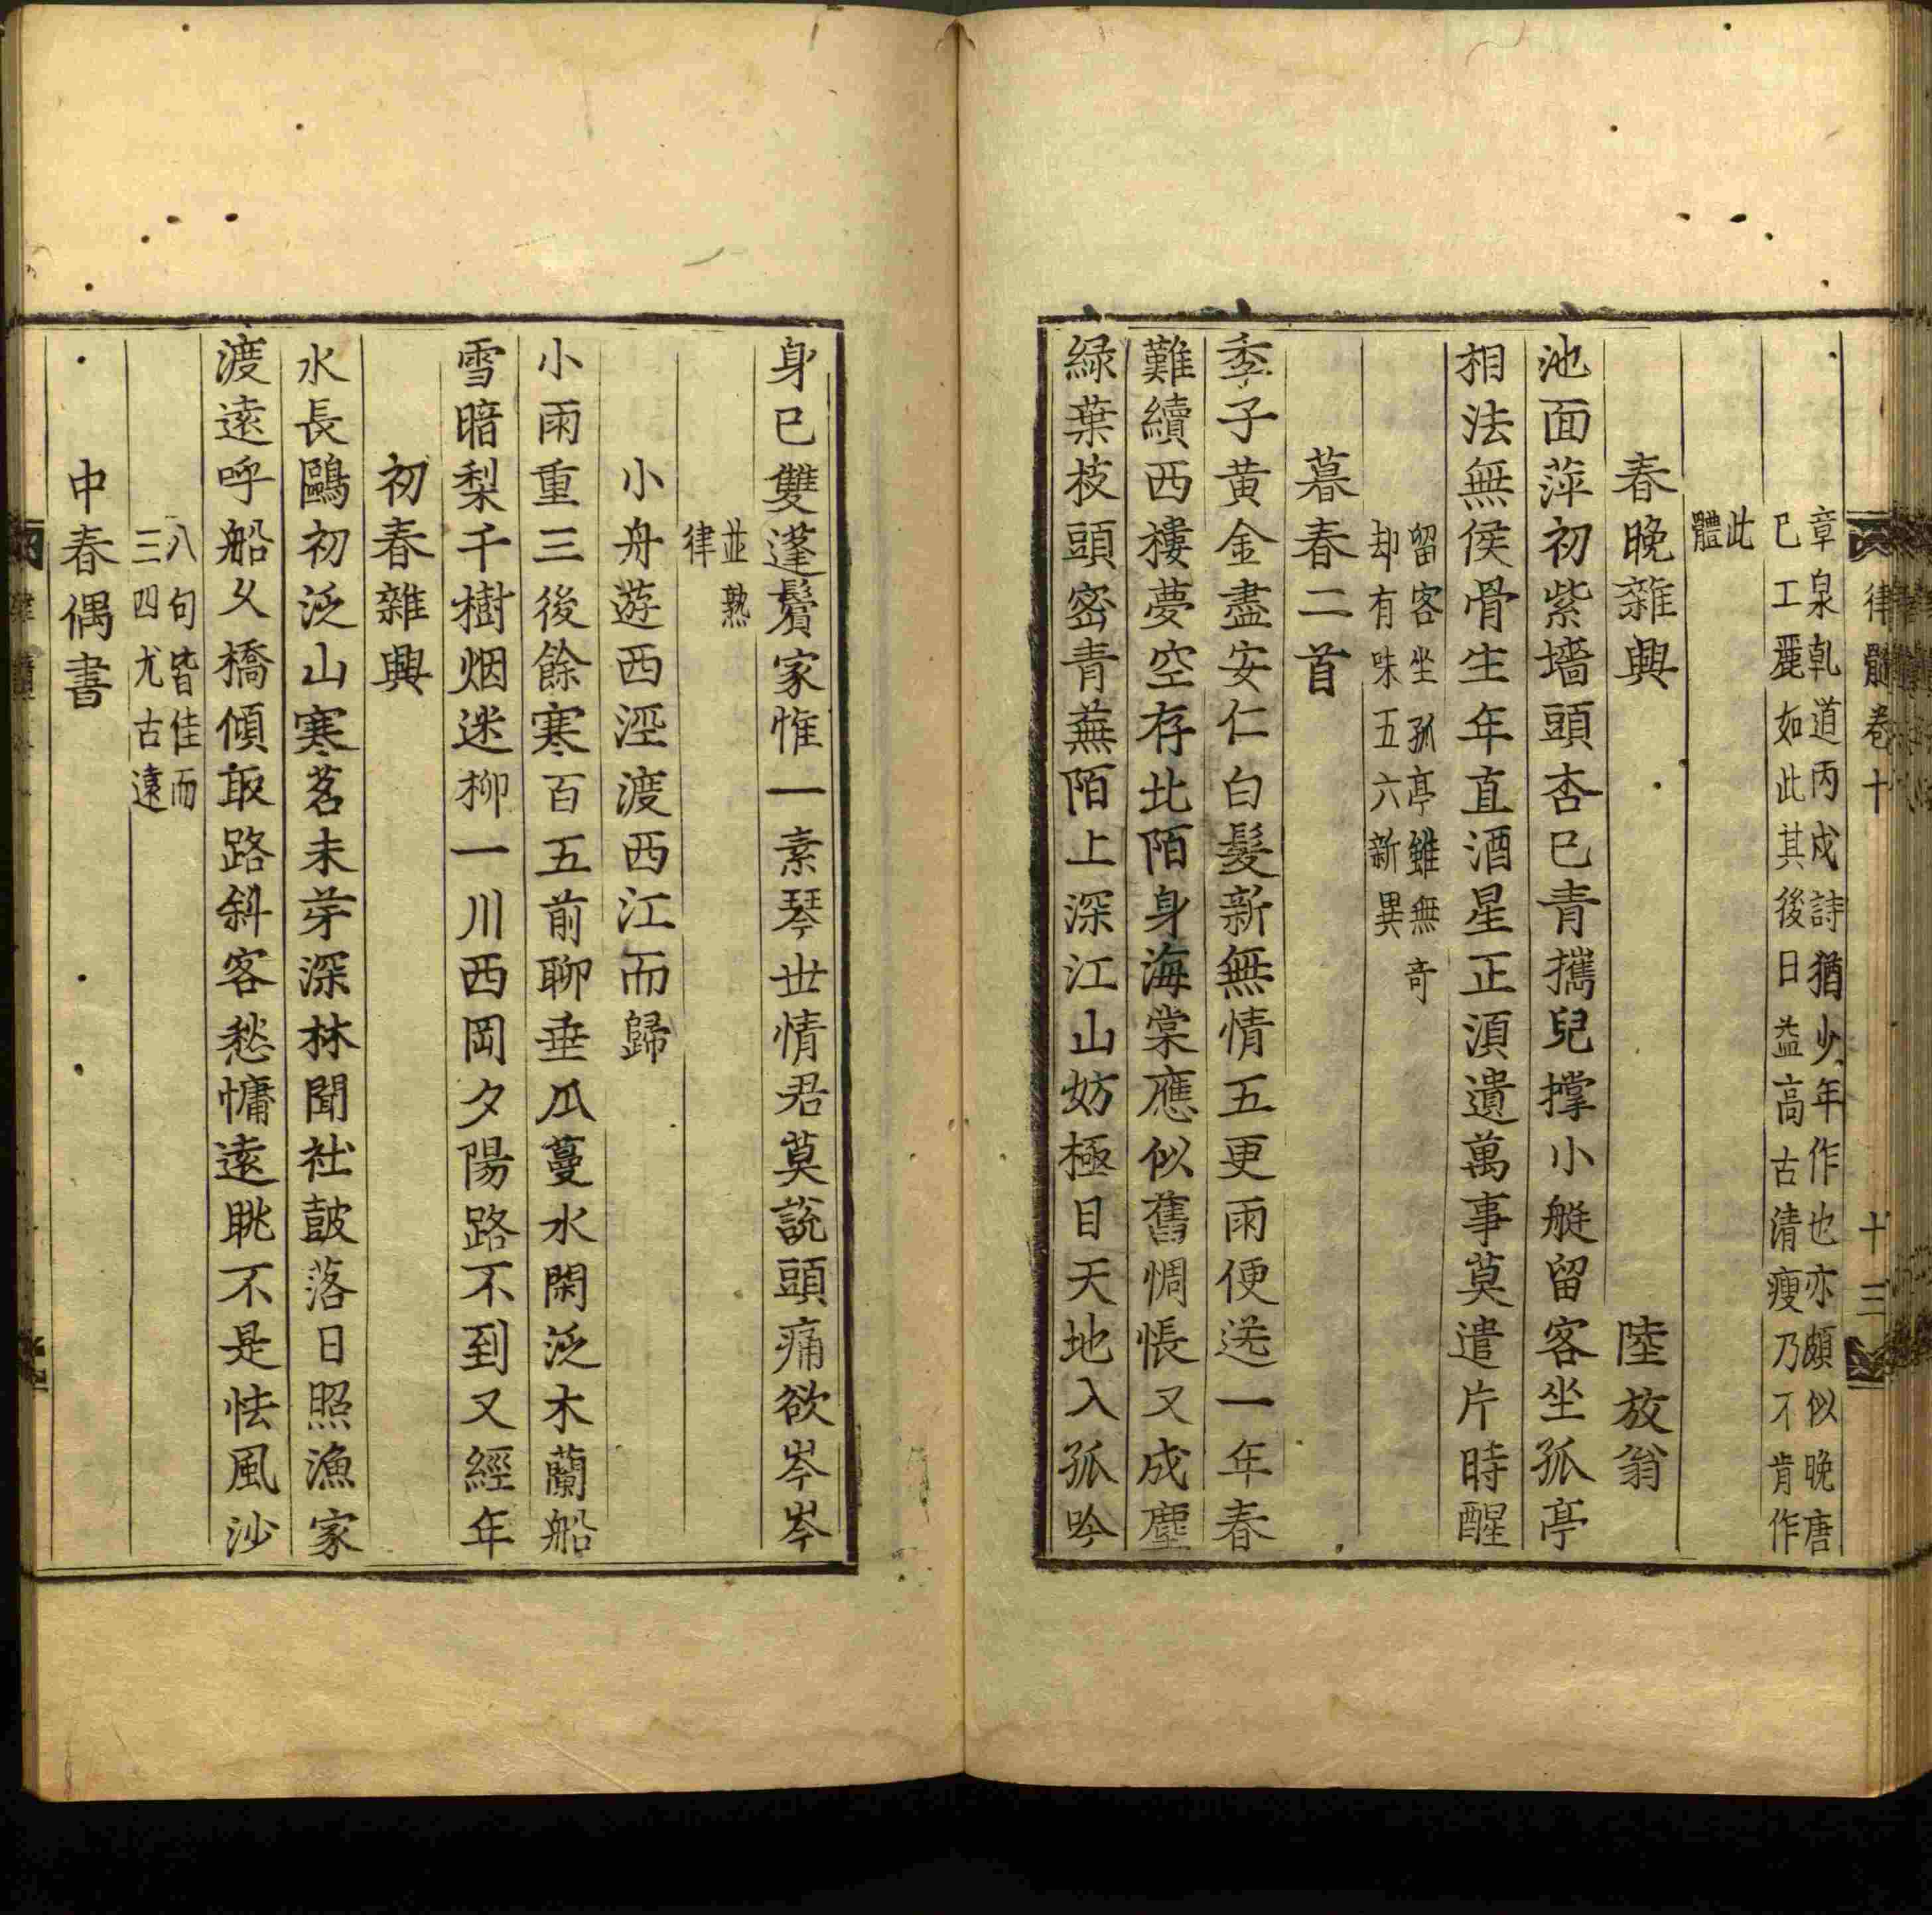 律髓卷十
十三
章泉乹道丙戌詩猶少年作也亦頗似晚唐
已工麗如此其後日益高古清瘦乃不肯作
此
體
春晚雜興
陸放翁
池面萍初紫墻頭杏已青攜兒撑小艇留客坐孤亭
相法無侯骨生年直酒星正湏遺萬事莫遣片時醒
留客坐孤亭雖無奇
却有味五六新異
暮春二首
季子黄金盡安仁白髮新無情五更雨便送一年春
難續西樓夢空存北陌身海棠應似舊惆悵又成塵
緑葉枝頭密青蕪陌上深江山妨極目天地入孤吟
身已雙蓬鬢家惟一素琴丗情君莫說頭痛欲岑岑
並熟
律
小舟遊西涇渡西江而歸
小雨重三後餘寒百五前聊垂瓜蔓水閑泛木蘭船
雪暗梨千樹烟迷柳一川西岡夕陽路不到又經年
初春雜興
水長鷗初泛山寒茗未芽深林聞社皷落日照漁家
渡遠呼船乆橋傾取路斜客愁慵遠眺不是怯風沙
八句皆佳而
三四尤古遠
中春偶書